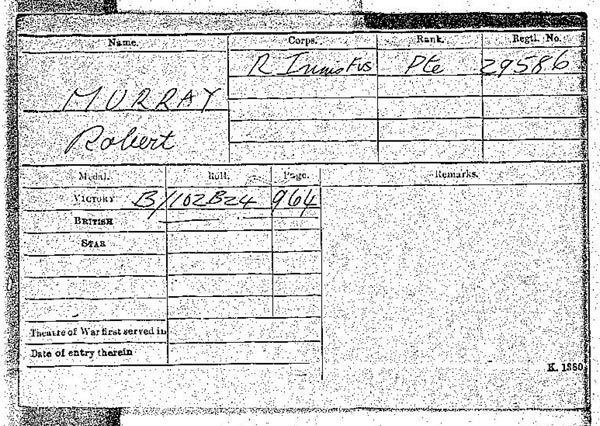 Name. Corps. Rank. Regtl. No.
R Innis Fus Pte 29586
MURRAY
Robert
Medal. Roll. Page. Remarks.
VICTORY B/102B24 964
BRITISH
STAR
Theatre of War first served in
Date of entry therein
K. 1380